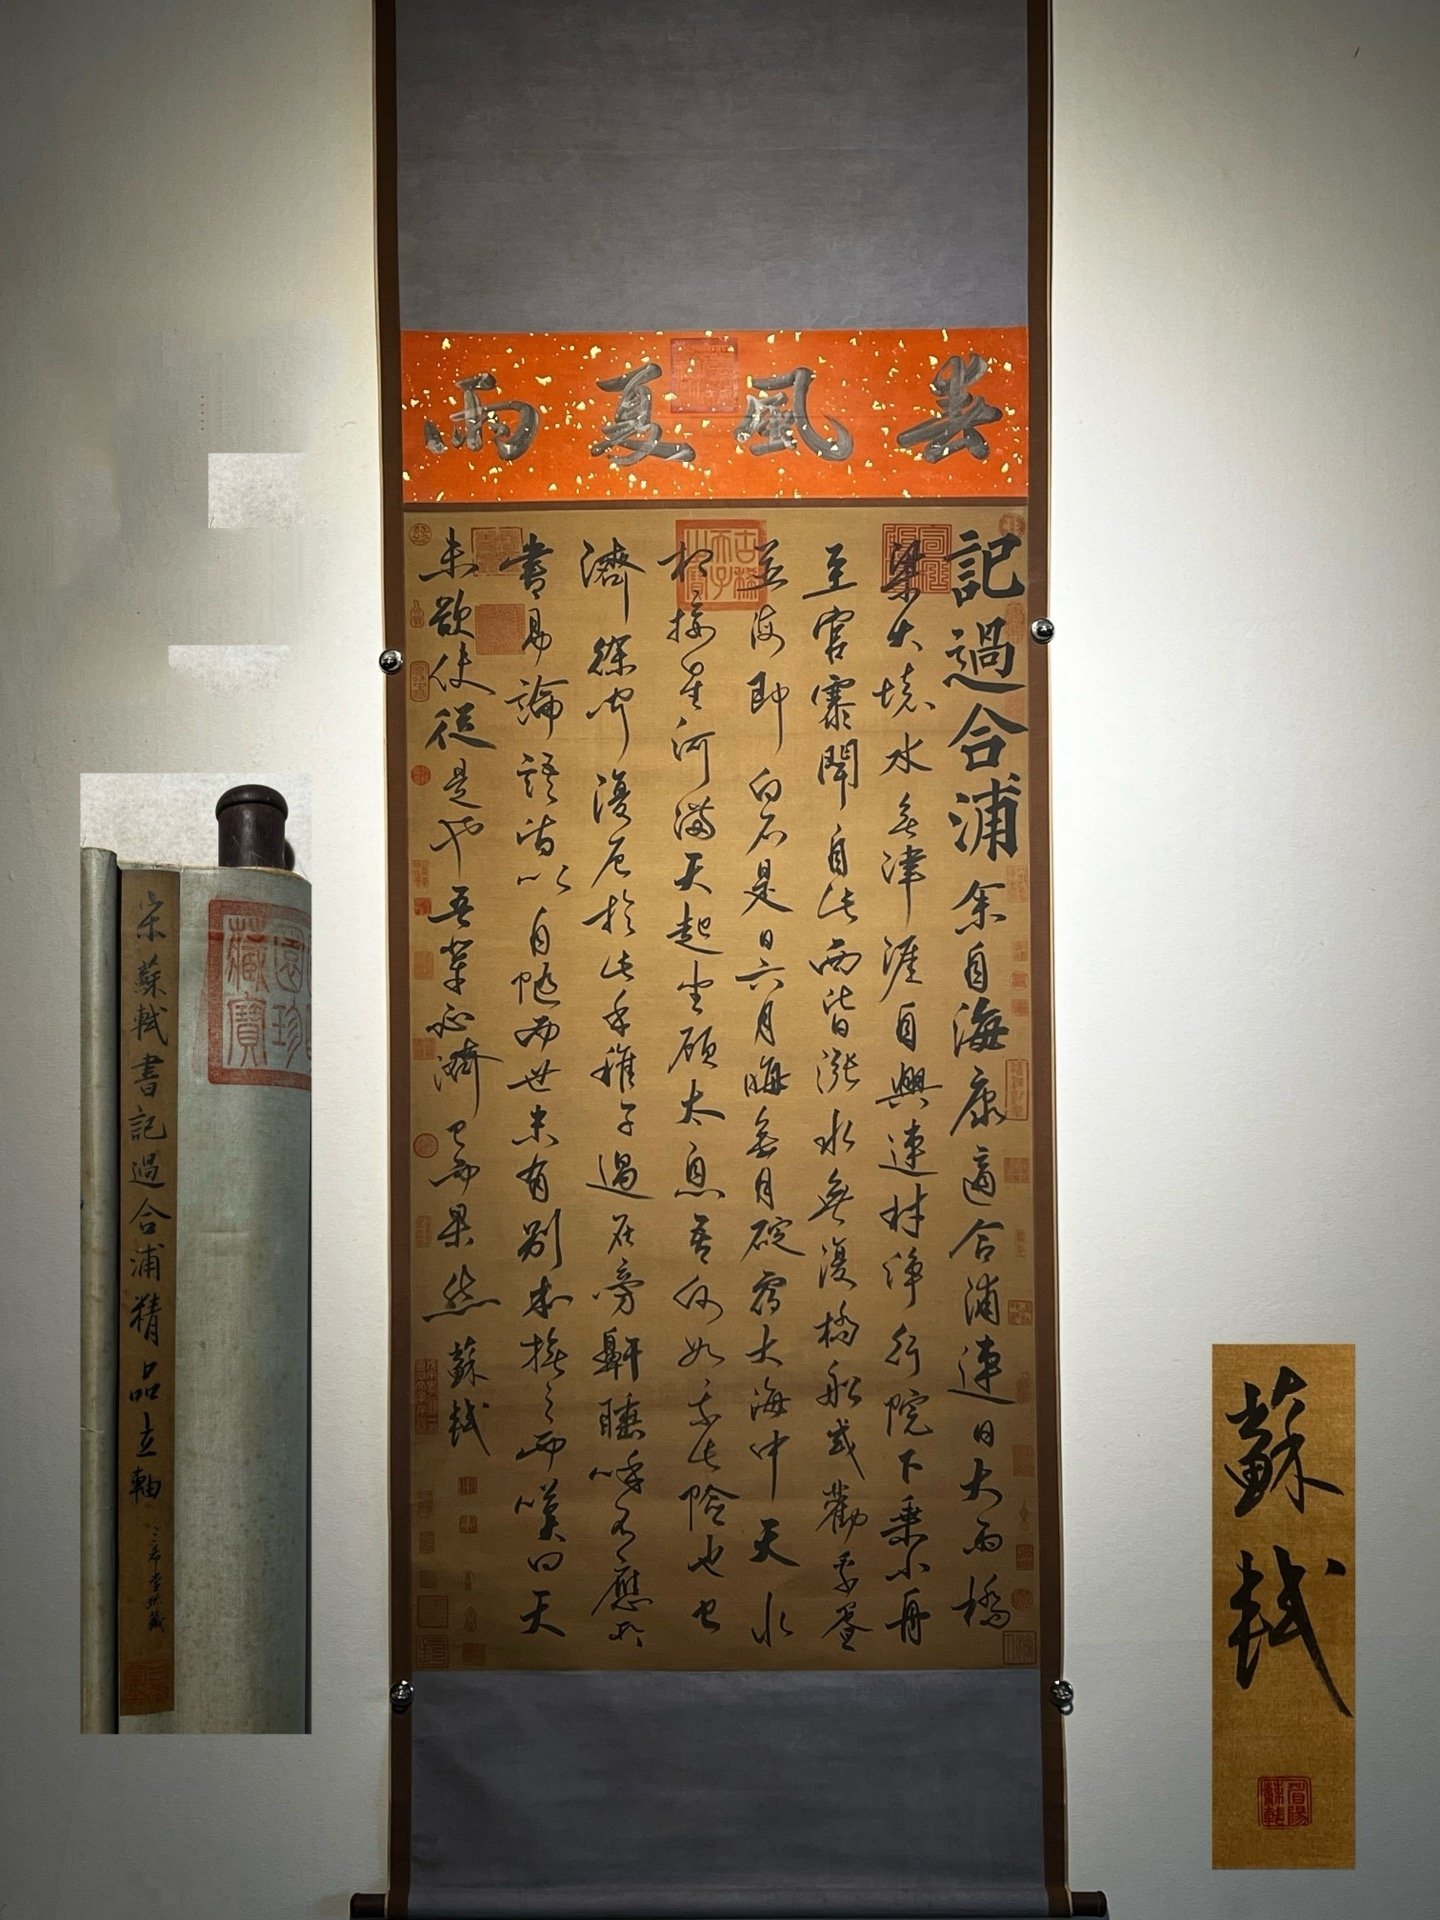 春風夏雨
記過合浦余自海康適合浦連日大雨橋
梁大壞水無津涯自興連村淨行院下乘小舟
至官寨聞自此西皆漲水無復橋船或勸乘蜑
並海即白石是日六月晦無月碇宿大海中天水
相接星河滿天起坐顧太息吾何如乘此險也已
濟徐聞復厄於此乎稚子過在旁鼾睡呼不應所
書易論語皆以自隨而世未有別本撫之而嘆曰天
未欲使從是也吾輩必濟已而果然蘇軾
宋蘇軾書記過合浦精品立軸
三希堂珍藏
蘇軾